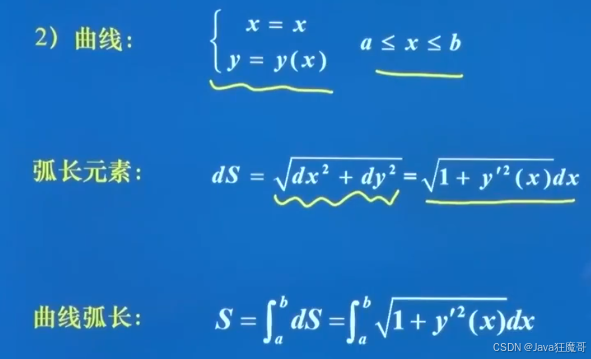 2）曲线： { x = x
y = y(x) a ≤ x ≤ b
弧长元素： dS = √(dx² + dy²) = √(1 + y'²(x))dx
曲线弧长： S = ∫ₐᵇ dS = ∫ₐᵇ √(1 + y'²(x))dx
CSDN @Java狂魔哥